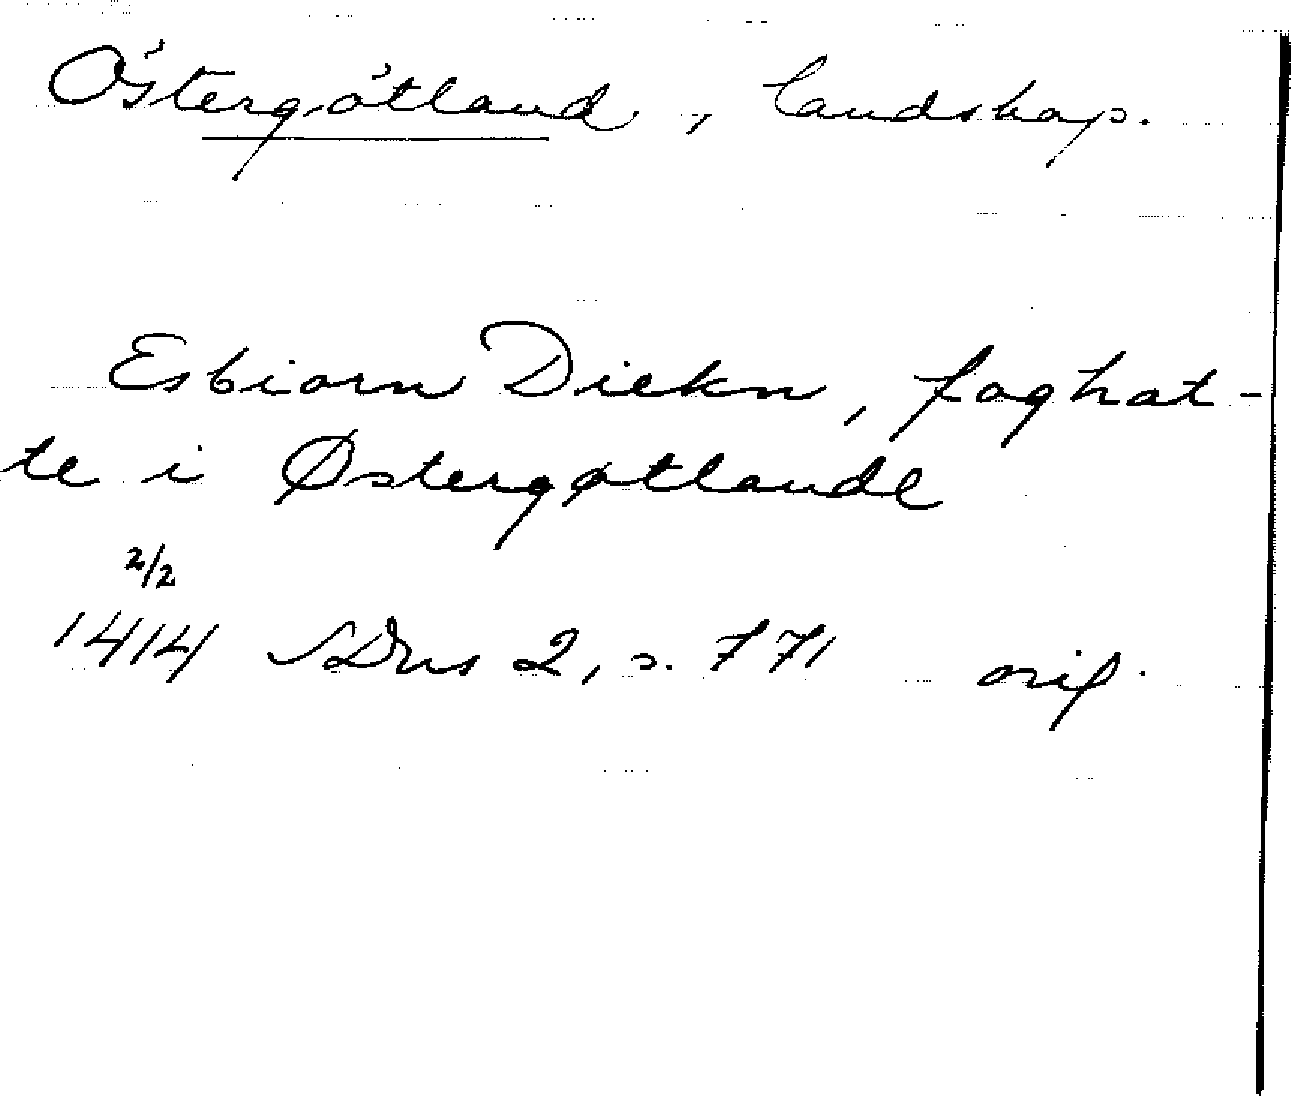 Östergötland, landskap.
Esbiorn Diekn, foghat-
te i Østergøtlandh
2/2
1414 SDns 2, s. 771 orig.